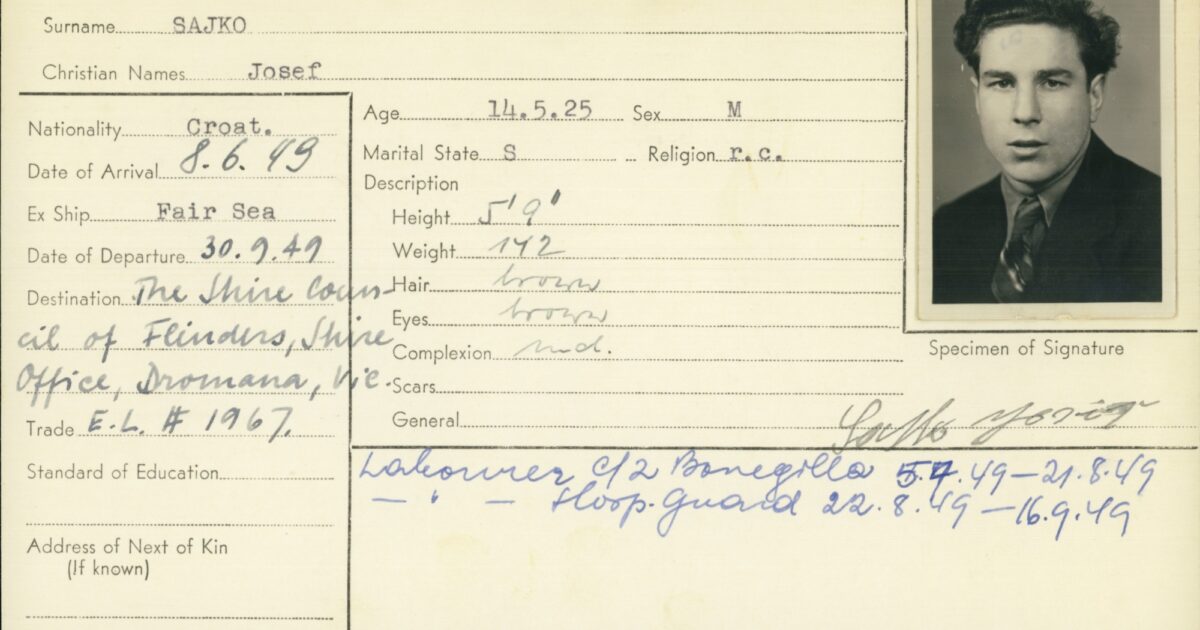 Surname SAJKO
Christian Names Josef
Nationality Croat.
Date of Arrival 8.6.49
Ex Ship Fair Sea
Date of Departure 30.9.49
Destination The Shire Coun-
cil of Flinders, Shire
Office, Dromana, Vic.
Trade E.L. # 1967.
Standard of Education
Address of Next of Kin
(If known)
Age 14.5.25 Sex M
Marital State S Religion r.c.
Description
Height 5'9'
Weight 142
Hair brown
Eyes brown
Complexion med.
Scars
General
Specimen of Signature
Labourer C/2 Bonegilla 5.7.49 — 21.8.49
— " — Hosp. Guard 22.8.49 — 16.9.49